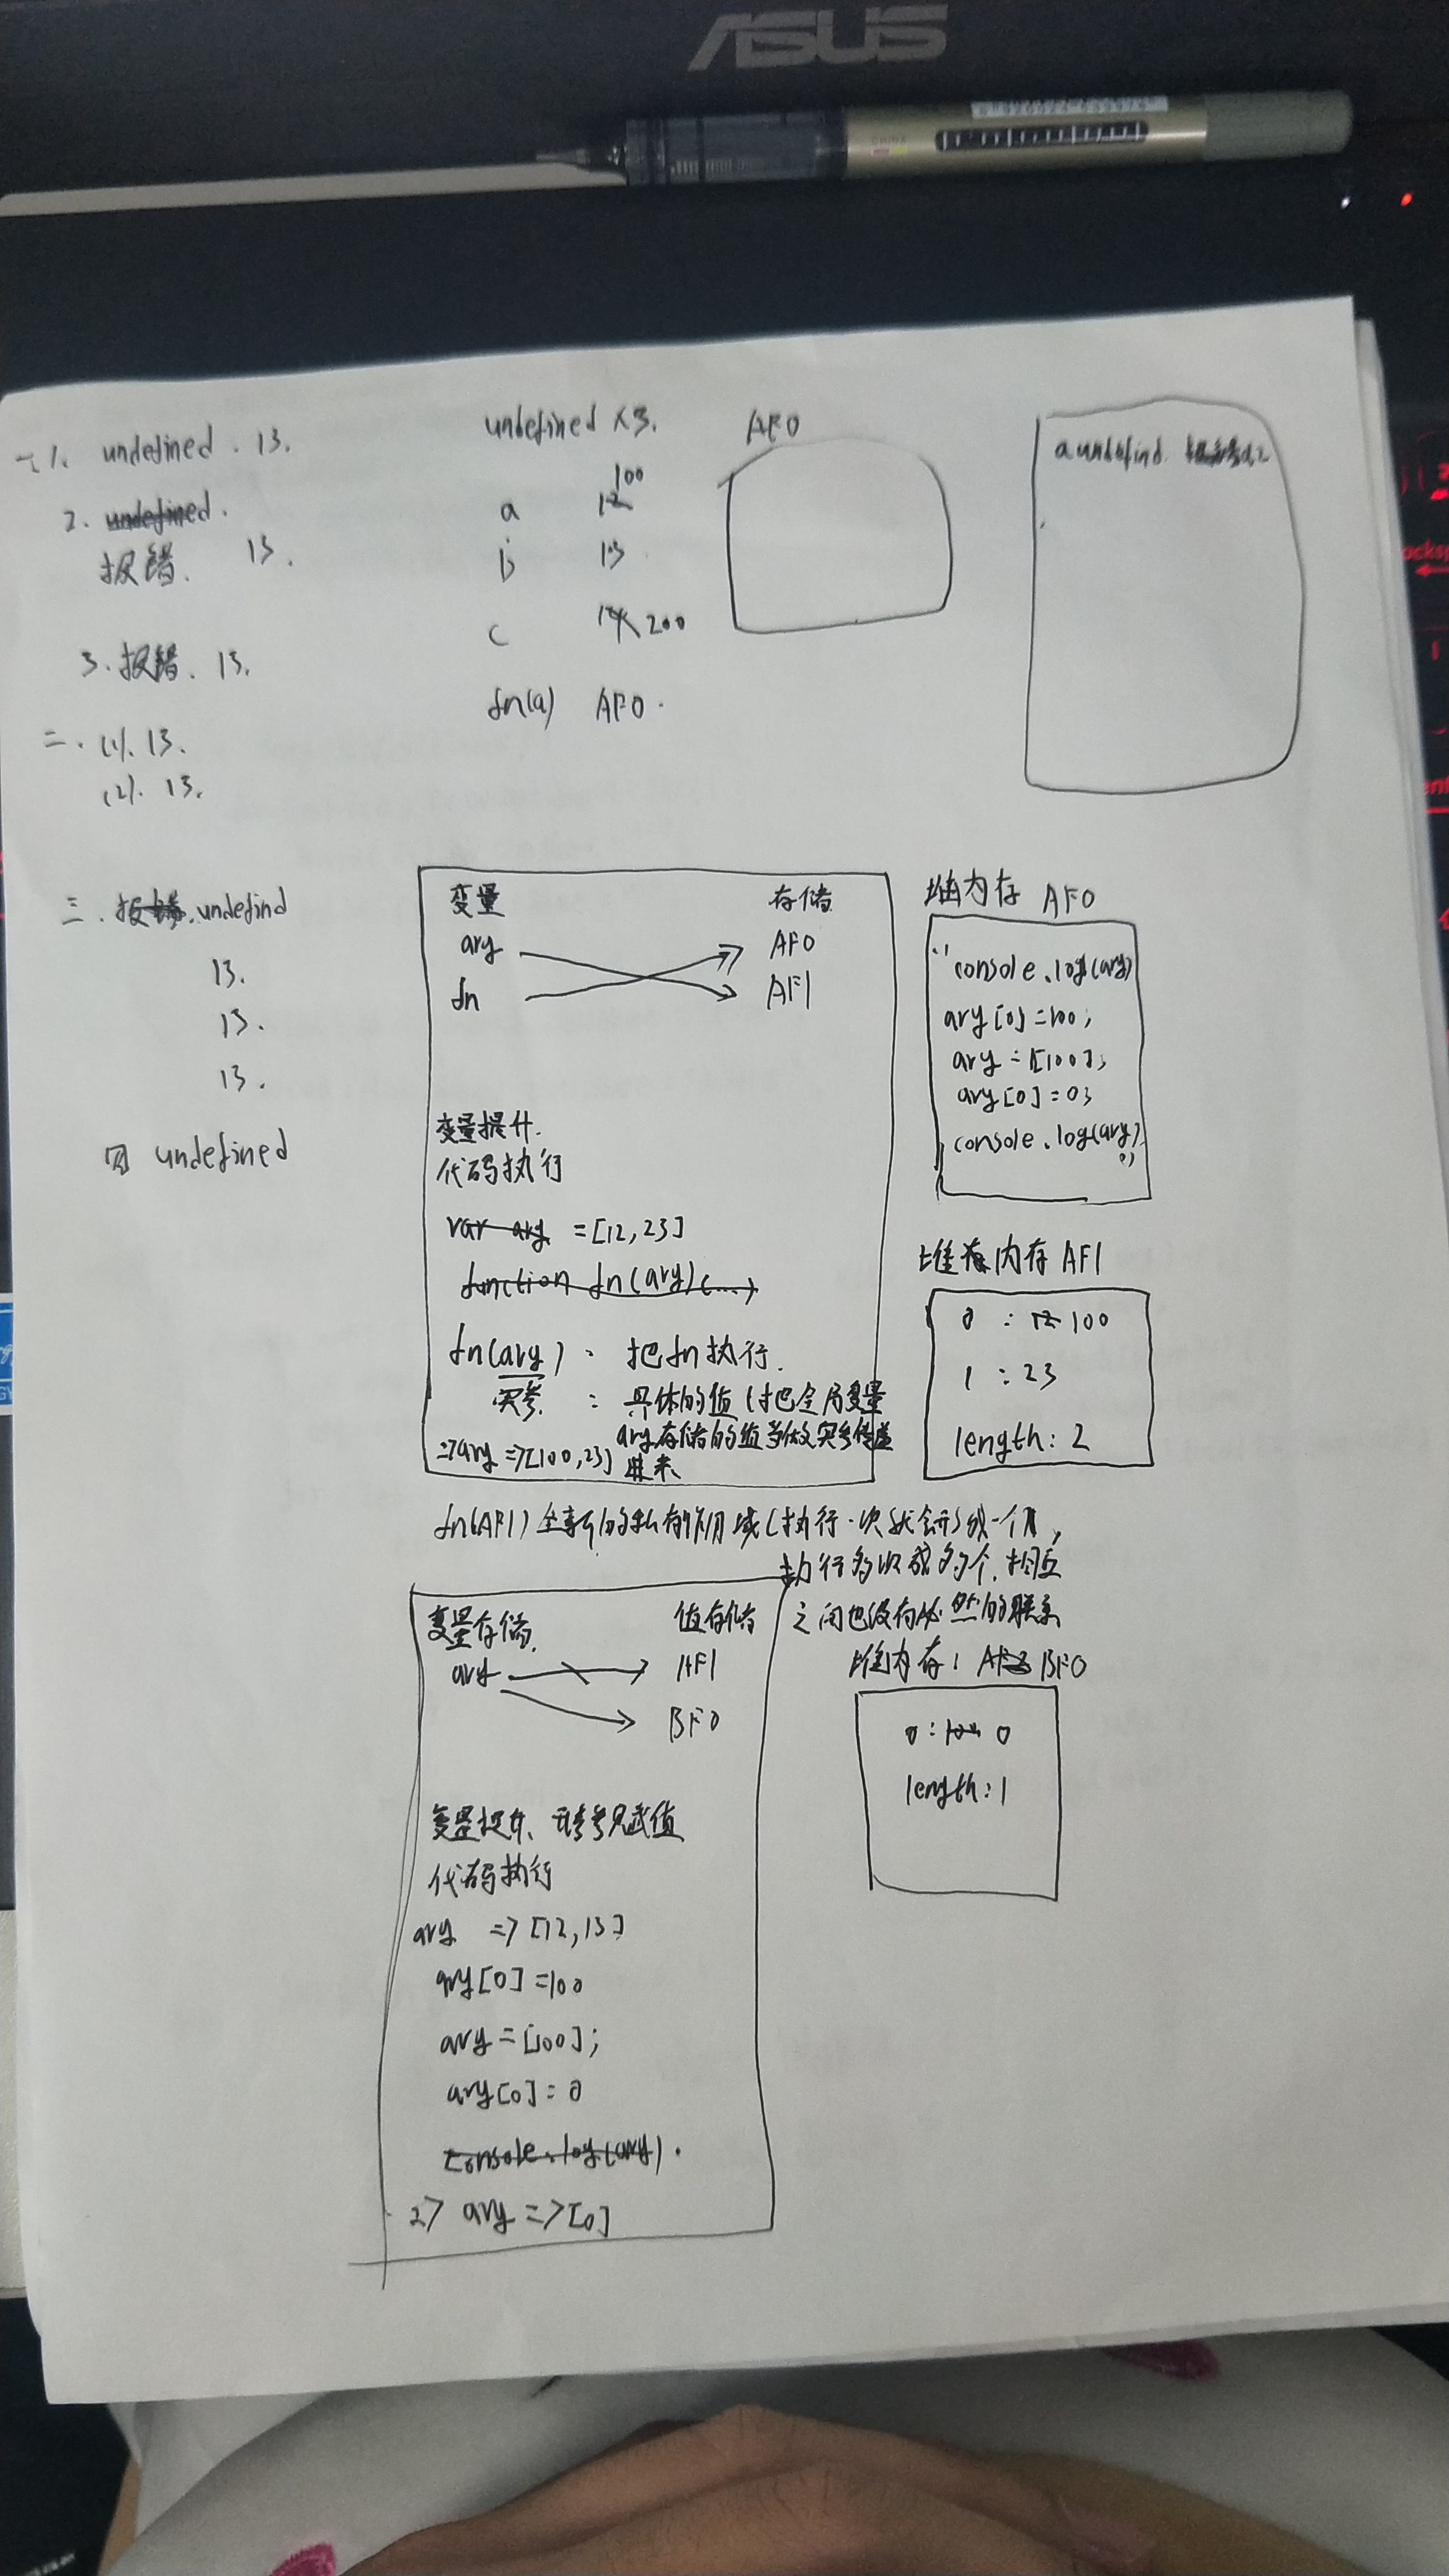 ASUS
一、1. undefined . 13.
2. undefined.
报错. 13.
3. 报错. 13.
二. (1). 13.
(2). 13.
三. 报错. undefind
13.
13.
13.
四 undefined
undefined ×3.
100
a 12
b 13
c 14 200
fn(a) AF0.
AF0
a undefind.
变量 存储
ary AF0
fn AF1
变量提升.
代码执行
var ary = [12,23]
function fn(ary){...}
fn(ary): 把fn执行.
实参: 具体的值(把全局变量
ary存储的值当做实参传递
进来
=>ary =>[100,23]
堆内存 AF0
"console.log(ary)
ary[0]=100;
ary=[100];
ary[0]=0;
console.log(ary)
堆内存 AF1
0 : 12 100
1 : 23
length: 2
fn(AF1) 全新的私有作用域(执行一次就会形成一个,
执行多次成多个.相互
之间也没有必然的联系
变量存储 值存储
ary AF1
BF0
堆内存: BF0
0: 100 0
length: 1
变量提升、形参赋值
代码执行
ary => [12,13]
ary[0]=100
ary=[100];
ary[0]=0
console.log(ary).
2> ary =>[0]